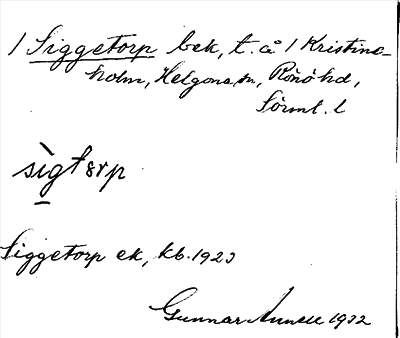 1 Siggetorp bek, t. å 1 Kristine-
holm, Helgona sn, Rönö hd,
Sörml. l
sìgtɵrp
Siggetorp ek, kb. 1923
Gunnar Annell 1932